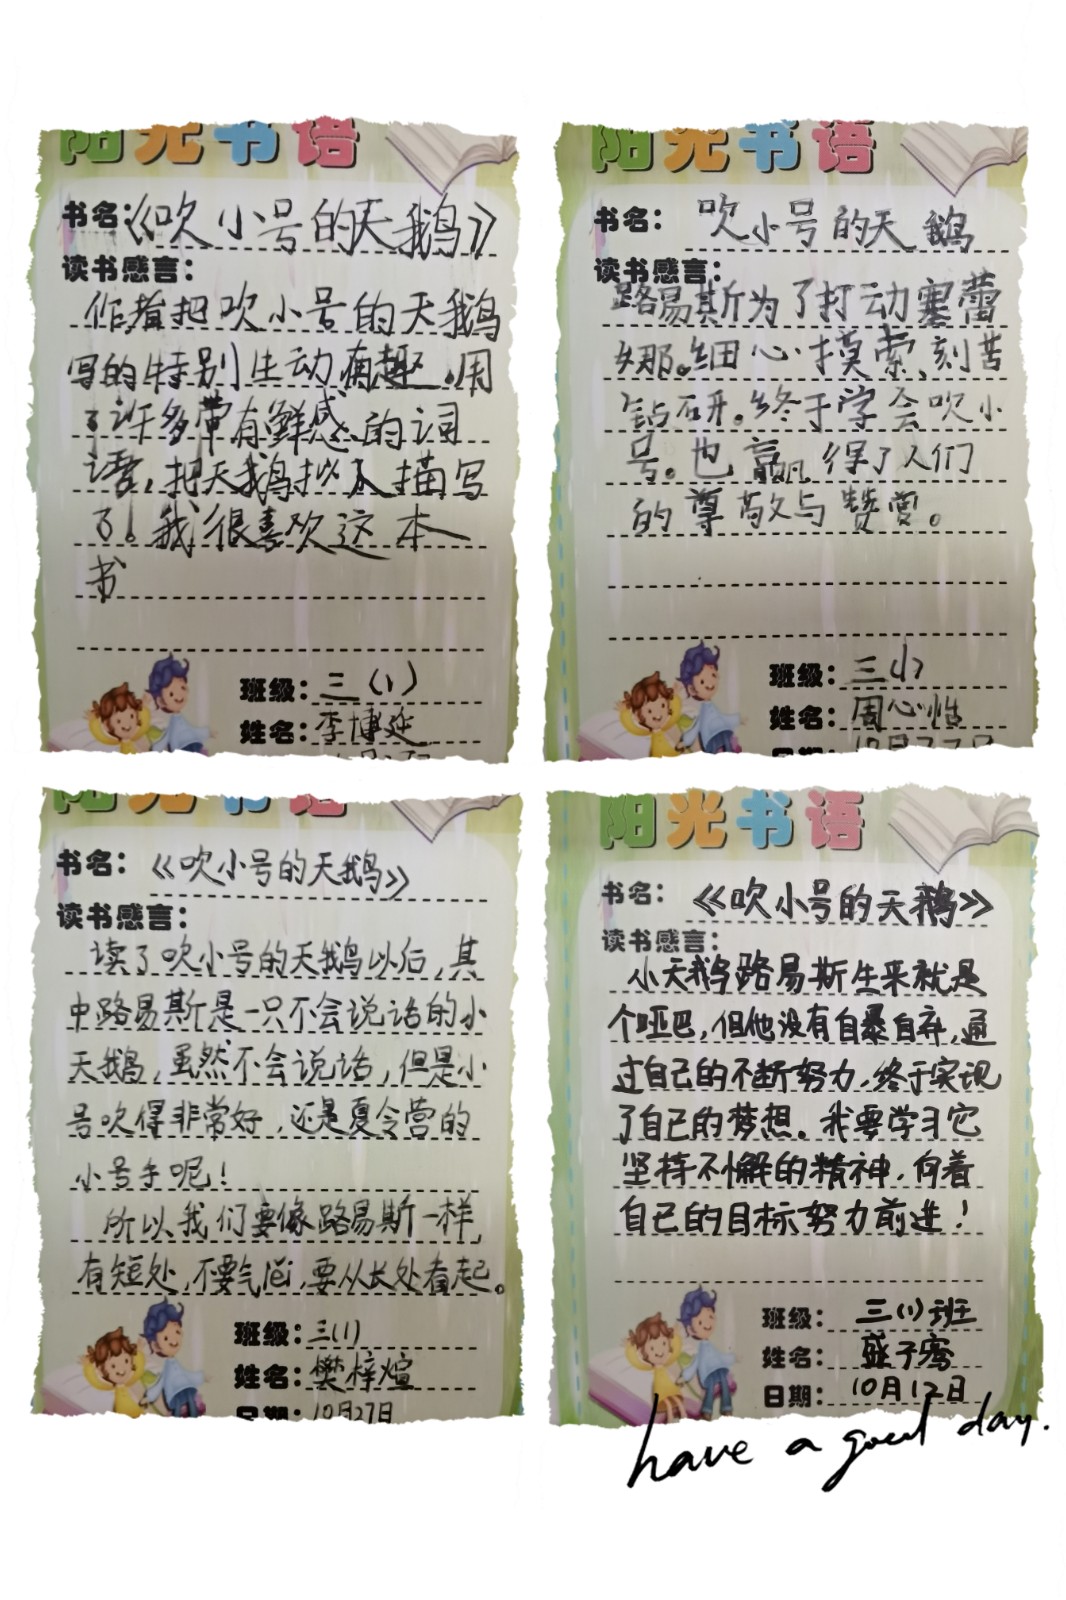 阳光书语
书名：《吹小号的天鹅》
读书感言：
作者把吹小号的天鹅
写的特别生动有趢.用
了许多带有鲜感的词
语，把天鹅拟人描写
了！我很喜欢这本
书
班级：三（1）
姓名：李博延
阳光书语
书名：吹小号的天鹅
读书感言：
路易斯为了打动塞蕾
娜。细心摸索、刻苦
钻研。终于学会吹小
号。也赢得了人们
的尊敬与赞赏。
班级：三（1）
姓名：周心怡
日期：10月27日
阳光书语
书名：《吹小号的天鹅》
读书感言：
读了吹小号的天鹅以后，其
中路易斯是一只不会说话的小
天鹅，虽然不会说话，但是小
号吹得非常好，还是夏令营的
小号手呢！
所以我们要像路易斯一样，
有短处，不要气馁，要从长处看起。
班级：三（1）
姓名：樊梓煊
日期：10月27日
阳光书语
书名：《吹小号的天鹅》
读书感言：
小天鹅路易斯生来就是
个哑巴，但他没有自暴自弃，通
过自己的不断努力，终于实现
了自己的梦想。我要学习它
坚持不懈的精神，向着
自己的目标努力前进！
班级：三（1）班
姓名：盛子骞
日期：10月12日
have a good day.